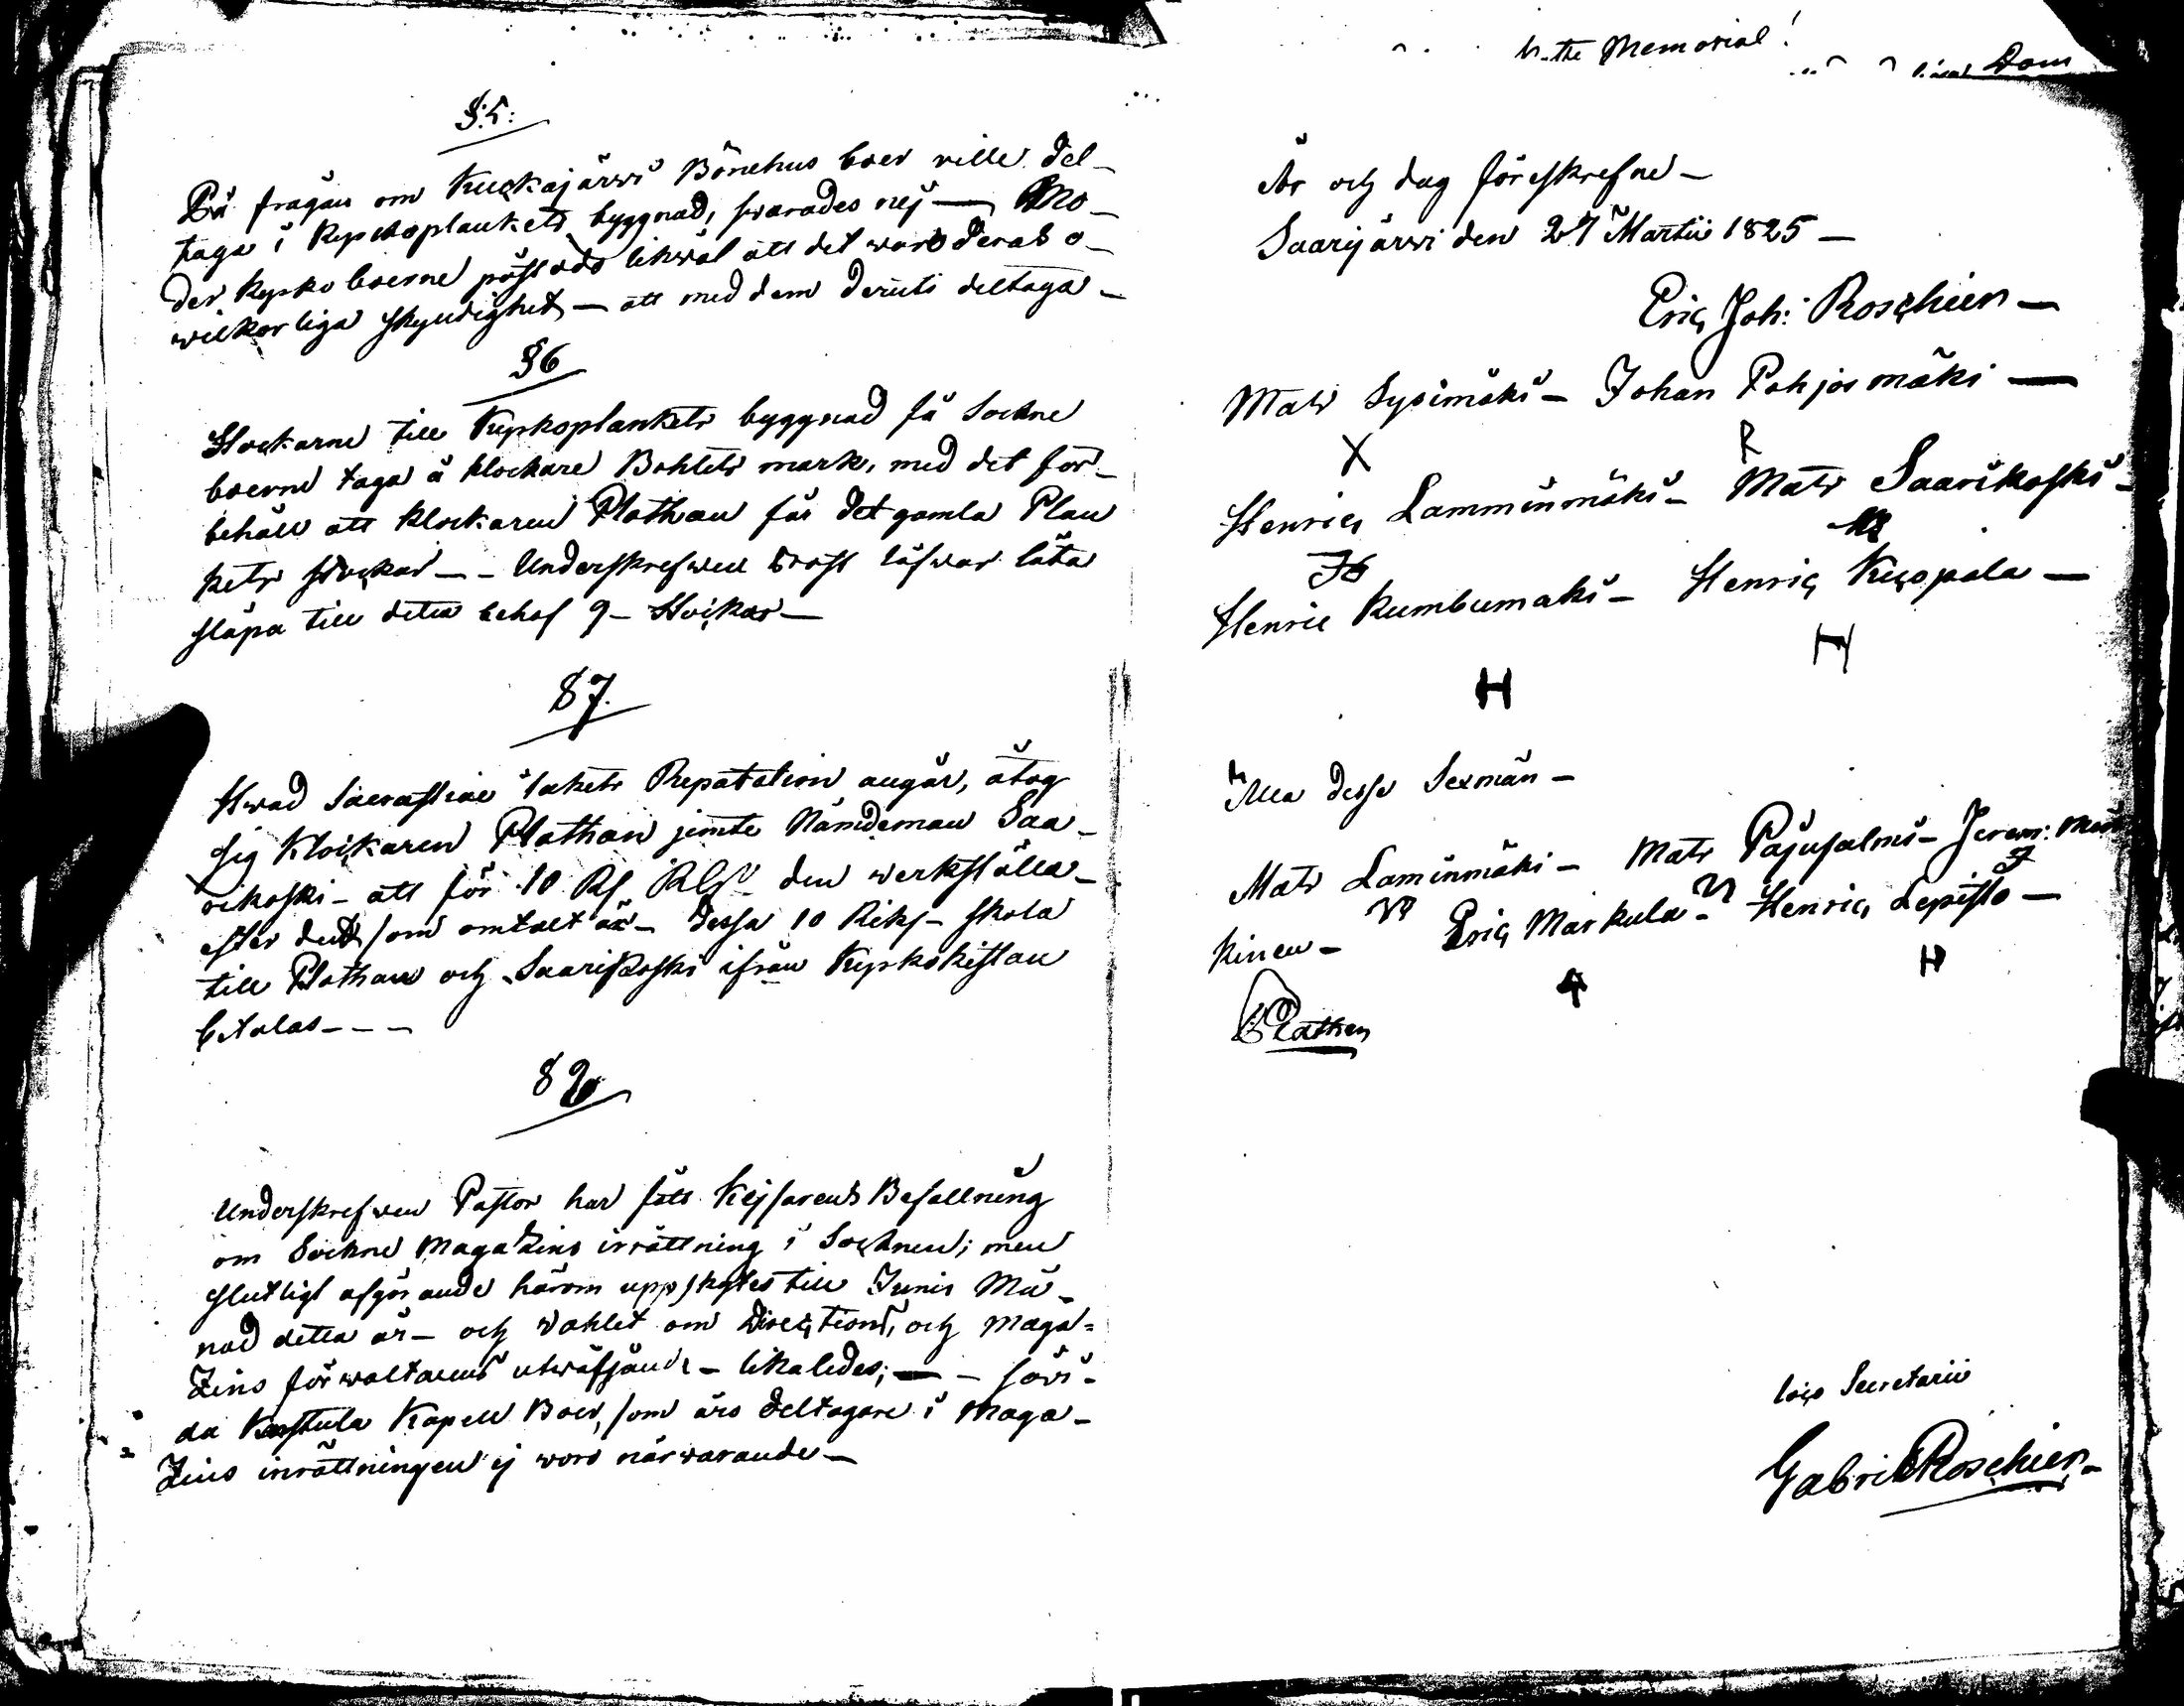 §.5:
På frågan om Kuckajärwi Bönehus boer wille del-
taga i Kyrckoplankets byggnad, swarades nej — Mo-
der Kyrko boerne påstodo likwäl att det wore deras o-
wilkorliga skyldighet — att med dem deruti deltaga —
§6
Stockarne till Kyrkoplankets byggnad få Sockne
boerne taga å klockare Bohlets mark, med det för-
behåll att klockaren Plathan får det gamla Plan
kets stockar — Underskrefwen Prost låfwar låta
släpa till detta behof 9 - Stockar —
§7.
Hwad Sacrastiae takets Reparation angår, åtog
sig Klockaren Plathan jemte Nämdeman Saa-
rikoski - att för 10 Rs den werkställa -
efter det som omtalt är - dessa 10 Riks - skola
till Plathan och Saarikoski ifrån Kyrkokistan
betalas - - -
§ 8
Underskrefwen Pastor har fått Kejsarens Befallning
om Sockne Magazins inrättning i Socknen; men
slutligt afgörande härom uppskötes till Junii Må-
nad detta år - och wahlet om Directions, och Maga=
Zins förwaltarens utwäljande - likaledes; — - såvi-
da Karstula Kapell Boer, som äro deltagare i Maga-
Zins inrättningen ej woro närwarande —
Memorial!
År och dag föreskrefne -
Saarijärwi den 27 Martii 1825 —
Eric Joh: Roschier —
Mats Sysimäki - Johan Pohjosmäki —
X R
Henric Lamminmäki - Mats Saarikoski -
Henric Kumbumäki - Henric Kuoppala —
H H
Alla desse Sexmän -
Mats Laminmäki - Mats Pajusalmi - Jerem:
kinen - Eric Markula - Henric Lepistö —
H
Plathan
loco Secretarii
Gabriel Roschier -